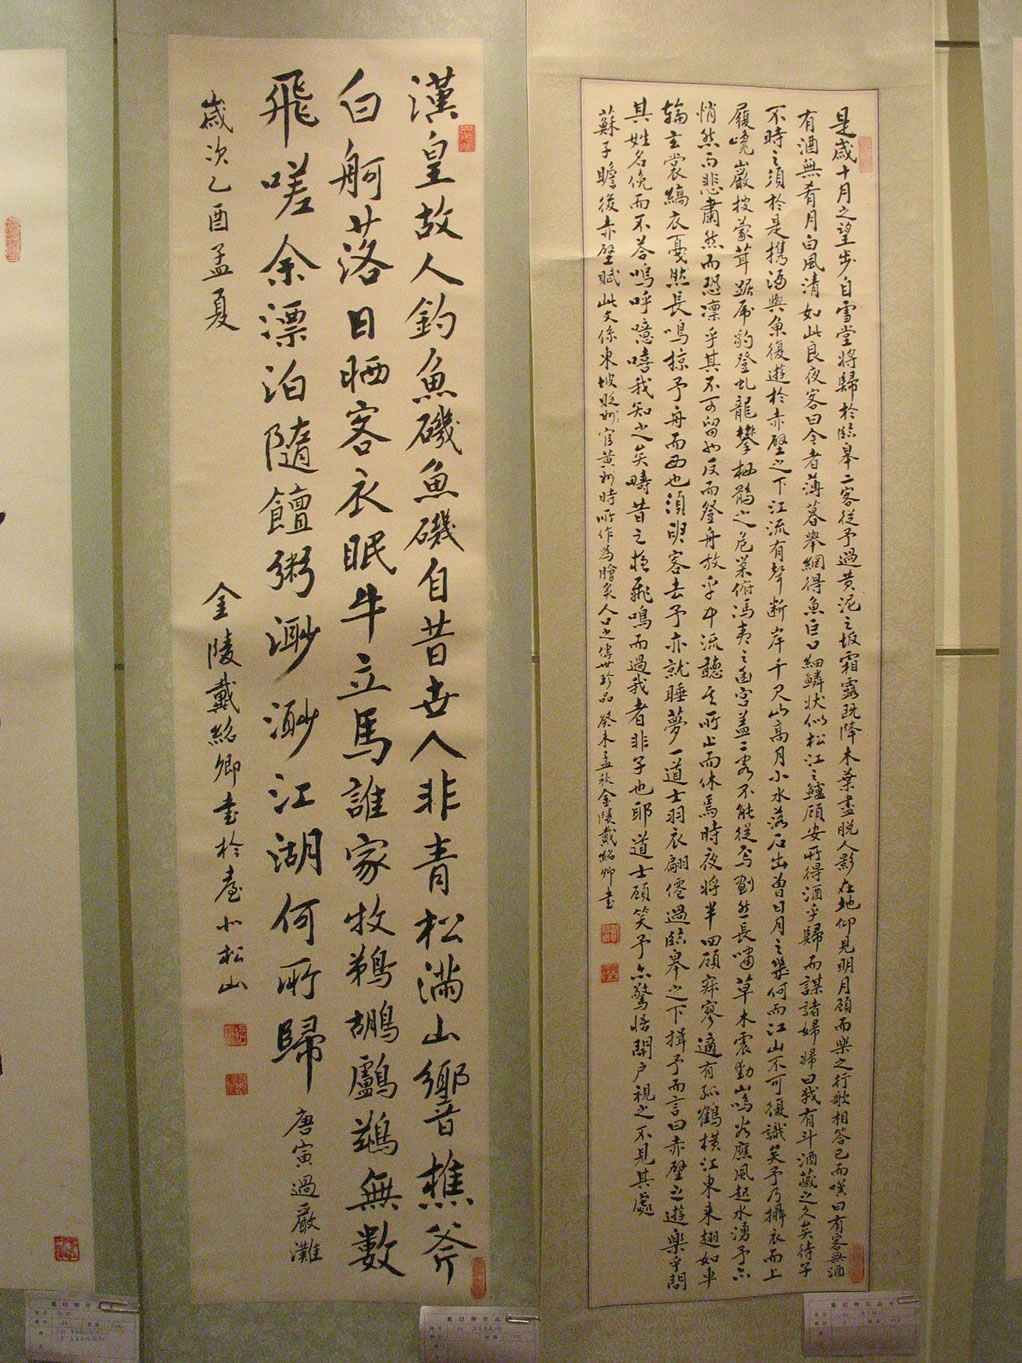 是歲十月之望步自雪堂將歸於臨皋二客從予過黃泥之坂霜露既降木葉盡脫人影在地仰見明月顧而樂之行歌相答已而嘆曰有客無酒
有酒無肴月白風清如此良夜客曰今者薄暮舉網得魚巨口細鱗狀似松江之鱸顧安所得酒乎歸而謀諸婦婦曰我有斗酒藏之久矣待子
不時之須於是攜酒與魚復遊於赤壁之下江流有聲斷岸千尺山高月小水落石出曾日月之幾何而江山不可復識矣予乃攝衣而上
履巉巖披蒙茸踞虎豹登虬龍攀栖鶻之危巢俯馮夷之幽宮蓋二客不能從焉劃然長嘯草木震動山鳴谷應風起水湧予亦
悄然而悲肅然而恐凜乎其不可留也反而登舟放乎中流聽其所止而休焉時夜將半四顧寂寥適有孤鶴橫江東來翅如車
輪玄裳縞衣戛然長鳴掠予舟而西也須臾客去予亦就睡夢一道士羽衣翩僊過臨皋之下揖予而言曰赤壁之遊樂乎問
其姓名俛而不答嗚呼噫嘻我知之矣疇昔之夜飛鳴而過我者非子也耶道士顧笑予亦驚悟開戶視之不見其處
蘇子瞻後赤壁賦此文係東坡貶官黃州時所作為膾炙人口之傳世珍品癸未孟秋金陵戴紹卿書
漢皇故人釣魚磯魚磯自昔世人非青松滿山響樵斧
白舸落日晒客衣眠牛立馬誰家牧鸂鶒無數
飛嗟余漂泊隨饘粥渺渺江湖何所歸 唐寅過嚴灘
歲次乙酉孟夏
金陵戴紹卿書於臺北松山